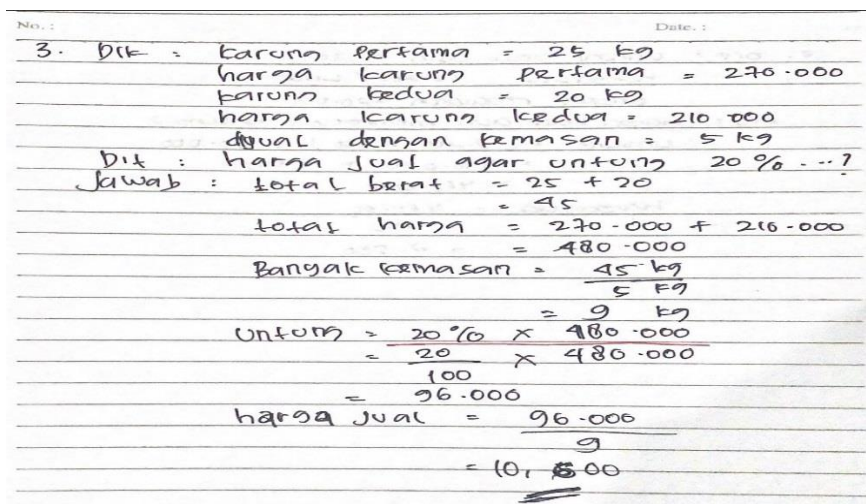 No. :
Date. :
3. Dik : karung pertama = 25 kg
harga karung pertama = 270.000
karung kedua = 20 kg
harga karung kedua = 210 000
dijual dengan kemasan = 5 kg
Dit : harga jual agar untung 20 % ...?
Jawab : total berat = 25 + 20
= 45
total harga = 270.000 + 210.000
= 480.000
Banyak kemasan = 45 kg
5 kg
= 9 kg
Untung = 20 % × 480.000
= 20 × 480.000
100
= 96.000
harga jual = 96.000
9
= 10, 600